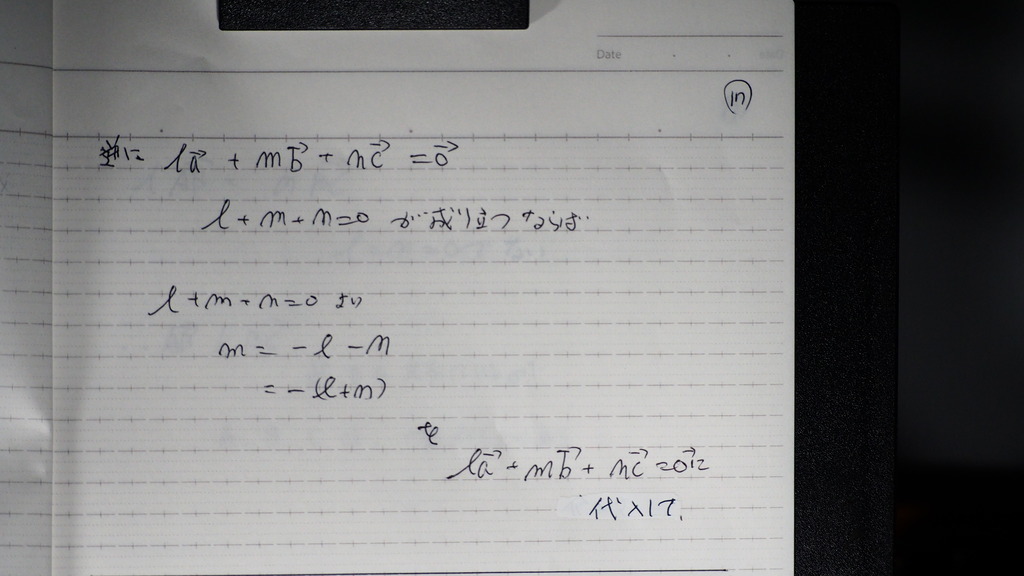 Date
(m)
逆に la⃗ + mb⃗ + nc⃗ = 0⃗
l + m + n = 0 が成り立つならば
l + m + n = 0 より
m = -l - n
= -(l+n)
を
la⃗ + mb⃗ + nc⃗ = 0⃗に
代入して、